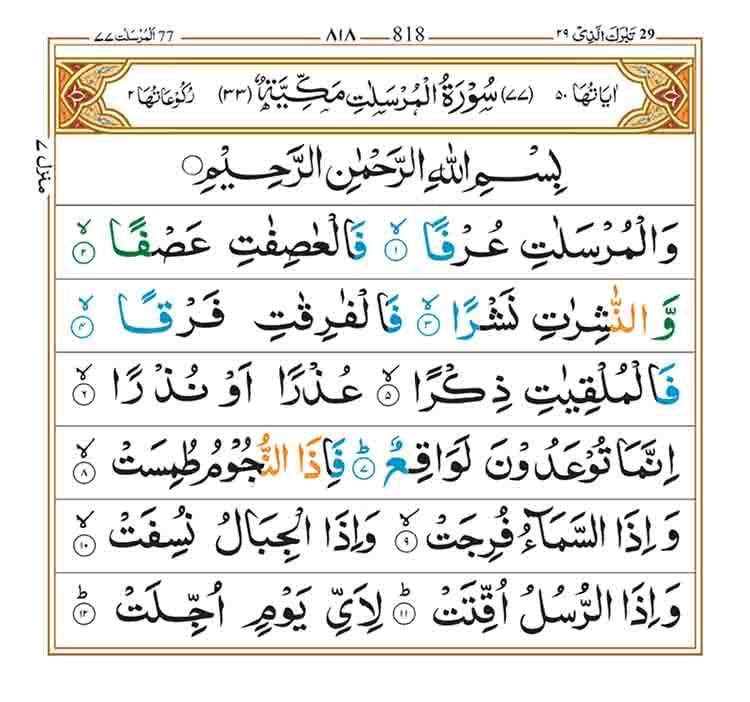 29 تَبٰرَكَ الَّذِیْ ٢٩ 818 ٨١٨ 77 اَلْمُرْسَلٰت ٧٧
اٰیَاتُهَا ٥٠ (٧٧) سُوْرَةُ الْمُرْسَلٰتِ مَكِّیَّةٌ (٣٣) رُكُوْعَاتُهَا ٢
منزل ٧
بِسْمِ اللّٰهِ الرَّحْمٰنِ الرَّحِیْمِ
وَالْمُرْسَلٰتِ عُرْفًا ۙ‏﴿١﴾ فَالْعٰصِفٰتِ عَصْفًا ۙ‏﴿٢﴾
وَّ النّٰشِرٰتِ نَشْرًا ۙ‏﴿٣﴾ فَالْفٰرِقٰتِ فَرْقًا ۙ‏﴿٤﴾
فَالْمُلْقِیٰتِ ذِكْرًا ۙ‏﴿٥﴾ عُذْرًا اَوْ نُذْرًا ۙ‏﴿٦﴾
اِنَّمَا تُوْعَدُوْنَ لَوَاقِعٌ ؕ‏﴿٧﴾ فَاِذَا النُّجُوْمُ طُمِسَتْ ۙ‏﴿٨﴾
وَ اِذَا السَّمَآءُ فُرِجَتْ ۙ‏﴿٩﴾ وَاِذَا الْجِبَالُ نُسِفَتْ ۙ‏﴿١٠﴾
وَ اِذَا الرُّسُلُ اُقِّتَتْ ؕ‏﴿١١﴾ لِاَیِّ یَوْمٍ اُجِّلَتْ ؕ‏﴿١٢﴾